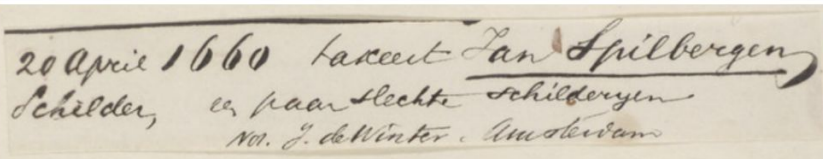 20 April 1660 taxeert Jan Spilbergen
Schilder, een paar slechte schilderyen
Not. J. de Winter. Amsterdam